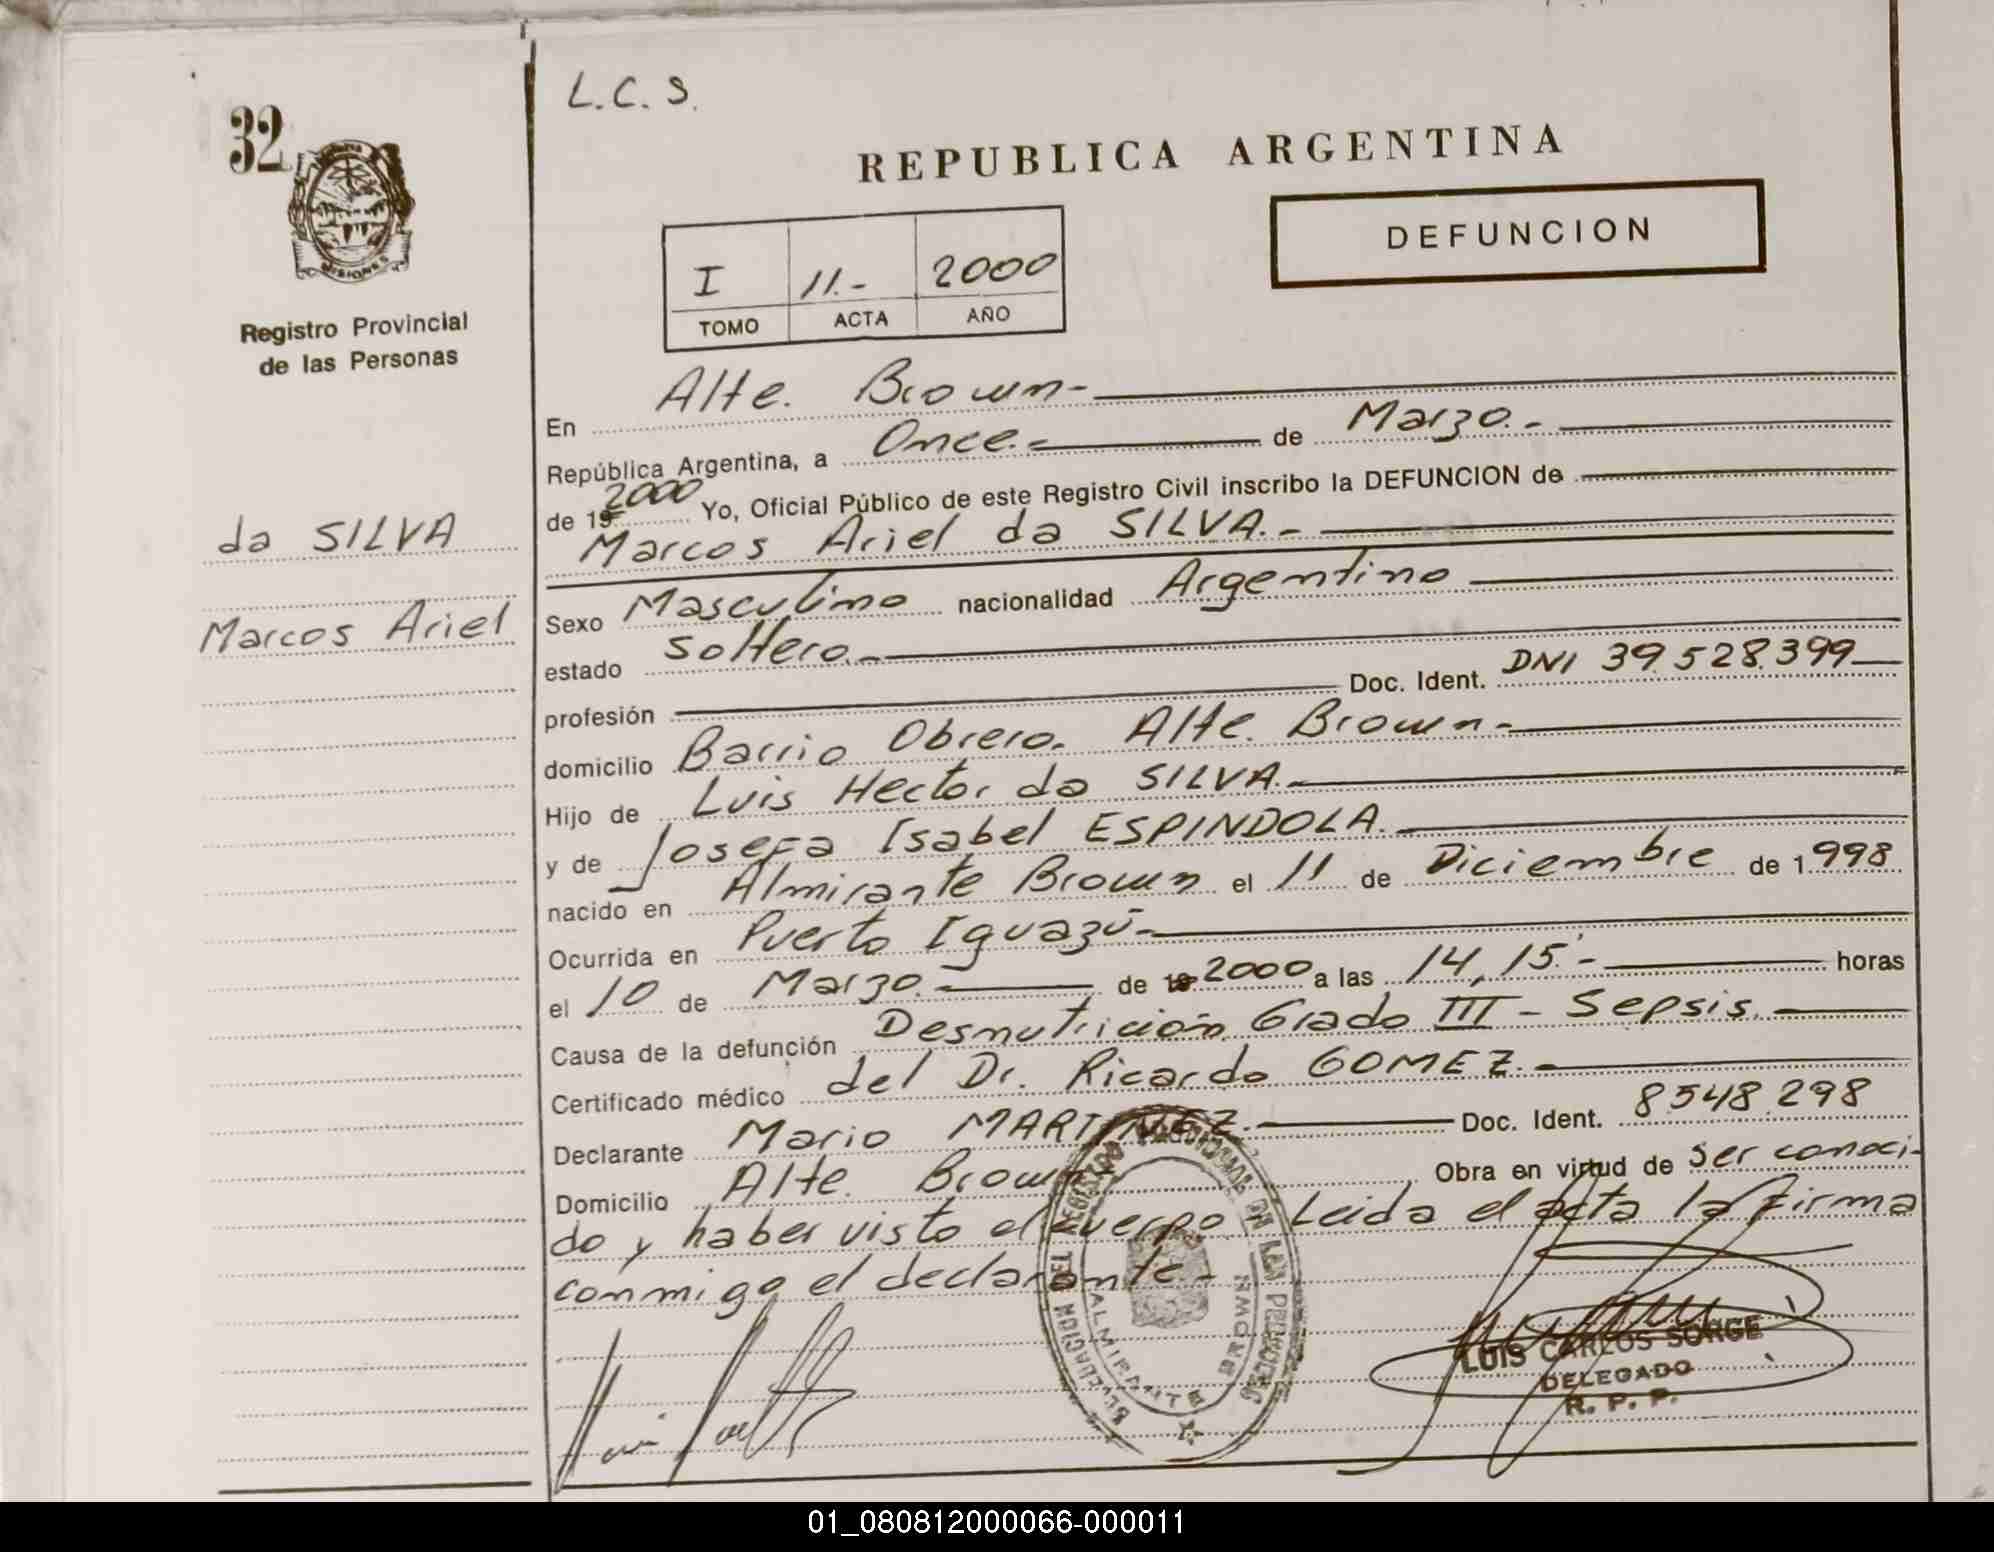 L.C.S.
32
REPUBLICA ARGENTINA
DEFUNCION
MISIONES
I 11.- 2000
TOMO ACTA AÑO
Registro Provincial
de las Personas
da SILVA
Marcos Ariel
En Alte. Brown-
República Argentina, a Once.- de Marzo.-
de 19 2000 Yo, Oficial Público de este Registro Civil inscribo la DEFUNCION de
Marcos Ariel da SILVA.-
Sexo Masculino nacionalidad Argentino
estado Soltero.-
profesión Doc. Ident. DNI 39.528.399
domicilio Barrio Obrero. Alte. Brown-
Hijo de Luis Hector da SILVA.-
y de Josefa Isabel ESPINDOLA.-
nacido en Almirante Brown el 11 de Diciembre de 1998
Ocurrida en Puerto Iguazú-
el 10 de Marzo.- de 19 2000 a las 14,15'- horas
Causa de la defunción Desnutrición Grado III - Sepsis.-
Certificado médico del Dr. Ricardo GOMEZ.-
Declarante Mario MARTINEZ.- Doc. Ident. 8.548.298
Domicilio Alte. Brown Obra en virtud de ser conoci-
do y haber visto el cuerpo. Leida el acta la firma
conmigo el declarante-
DEL REGISTRO PROVINCIAL DE LAS PERSONAS
ALMIRANTE BROWN
LUIS CARLOS SORGE
DELEGADO
R. P. P.
01_080812000066-000011